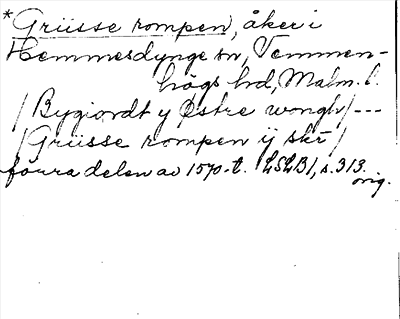 *Grüsse rompen, åker i
Hemmesdynge sn, Vemmen-
högs hd, Malm. l.
/Bygiordt y Østre wongh/---
/Grüsse rompen ij skr/
förra delen av 1570-t. LSLB1, s. 313.
orig.